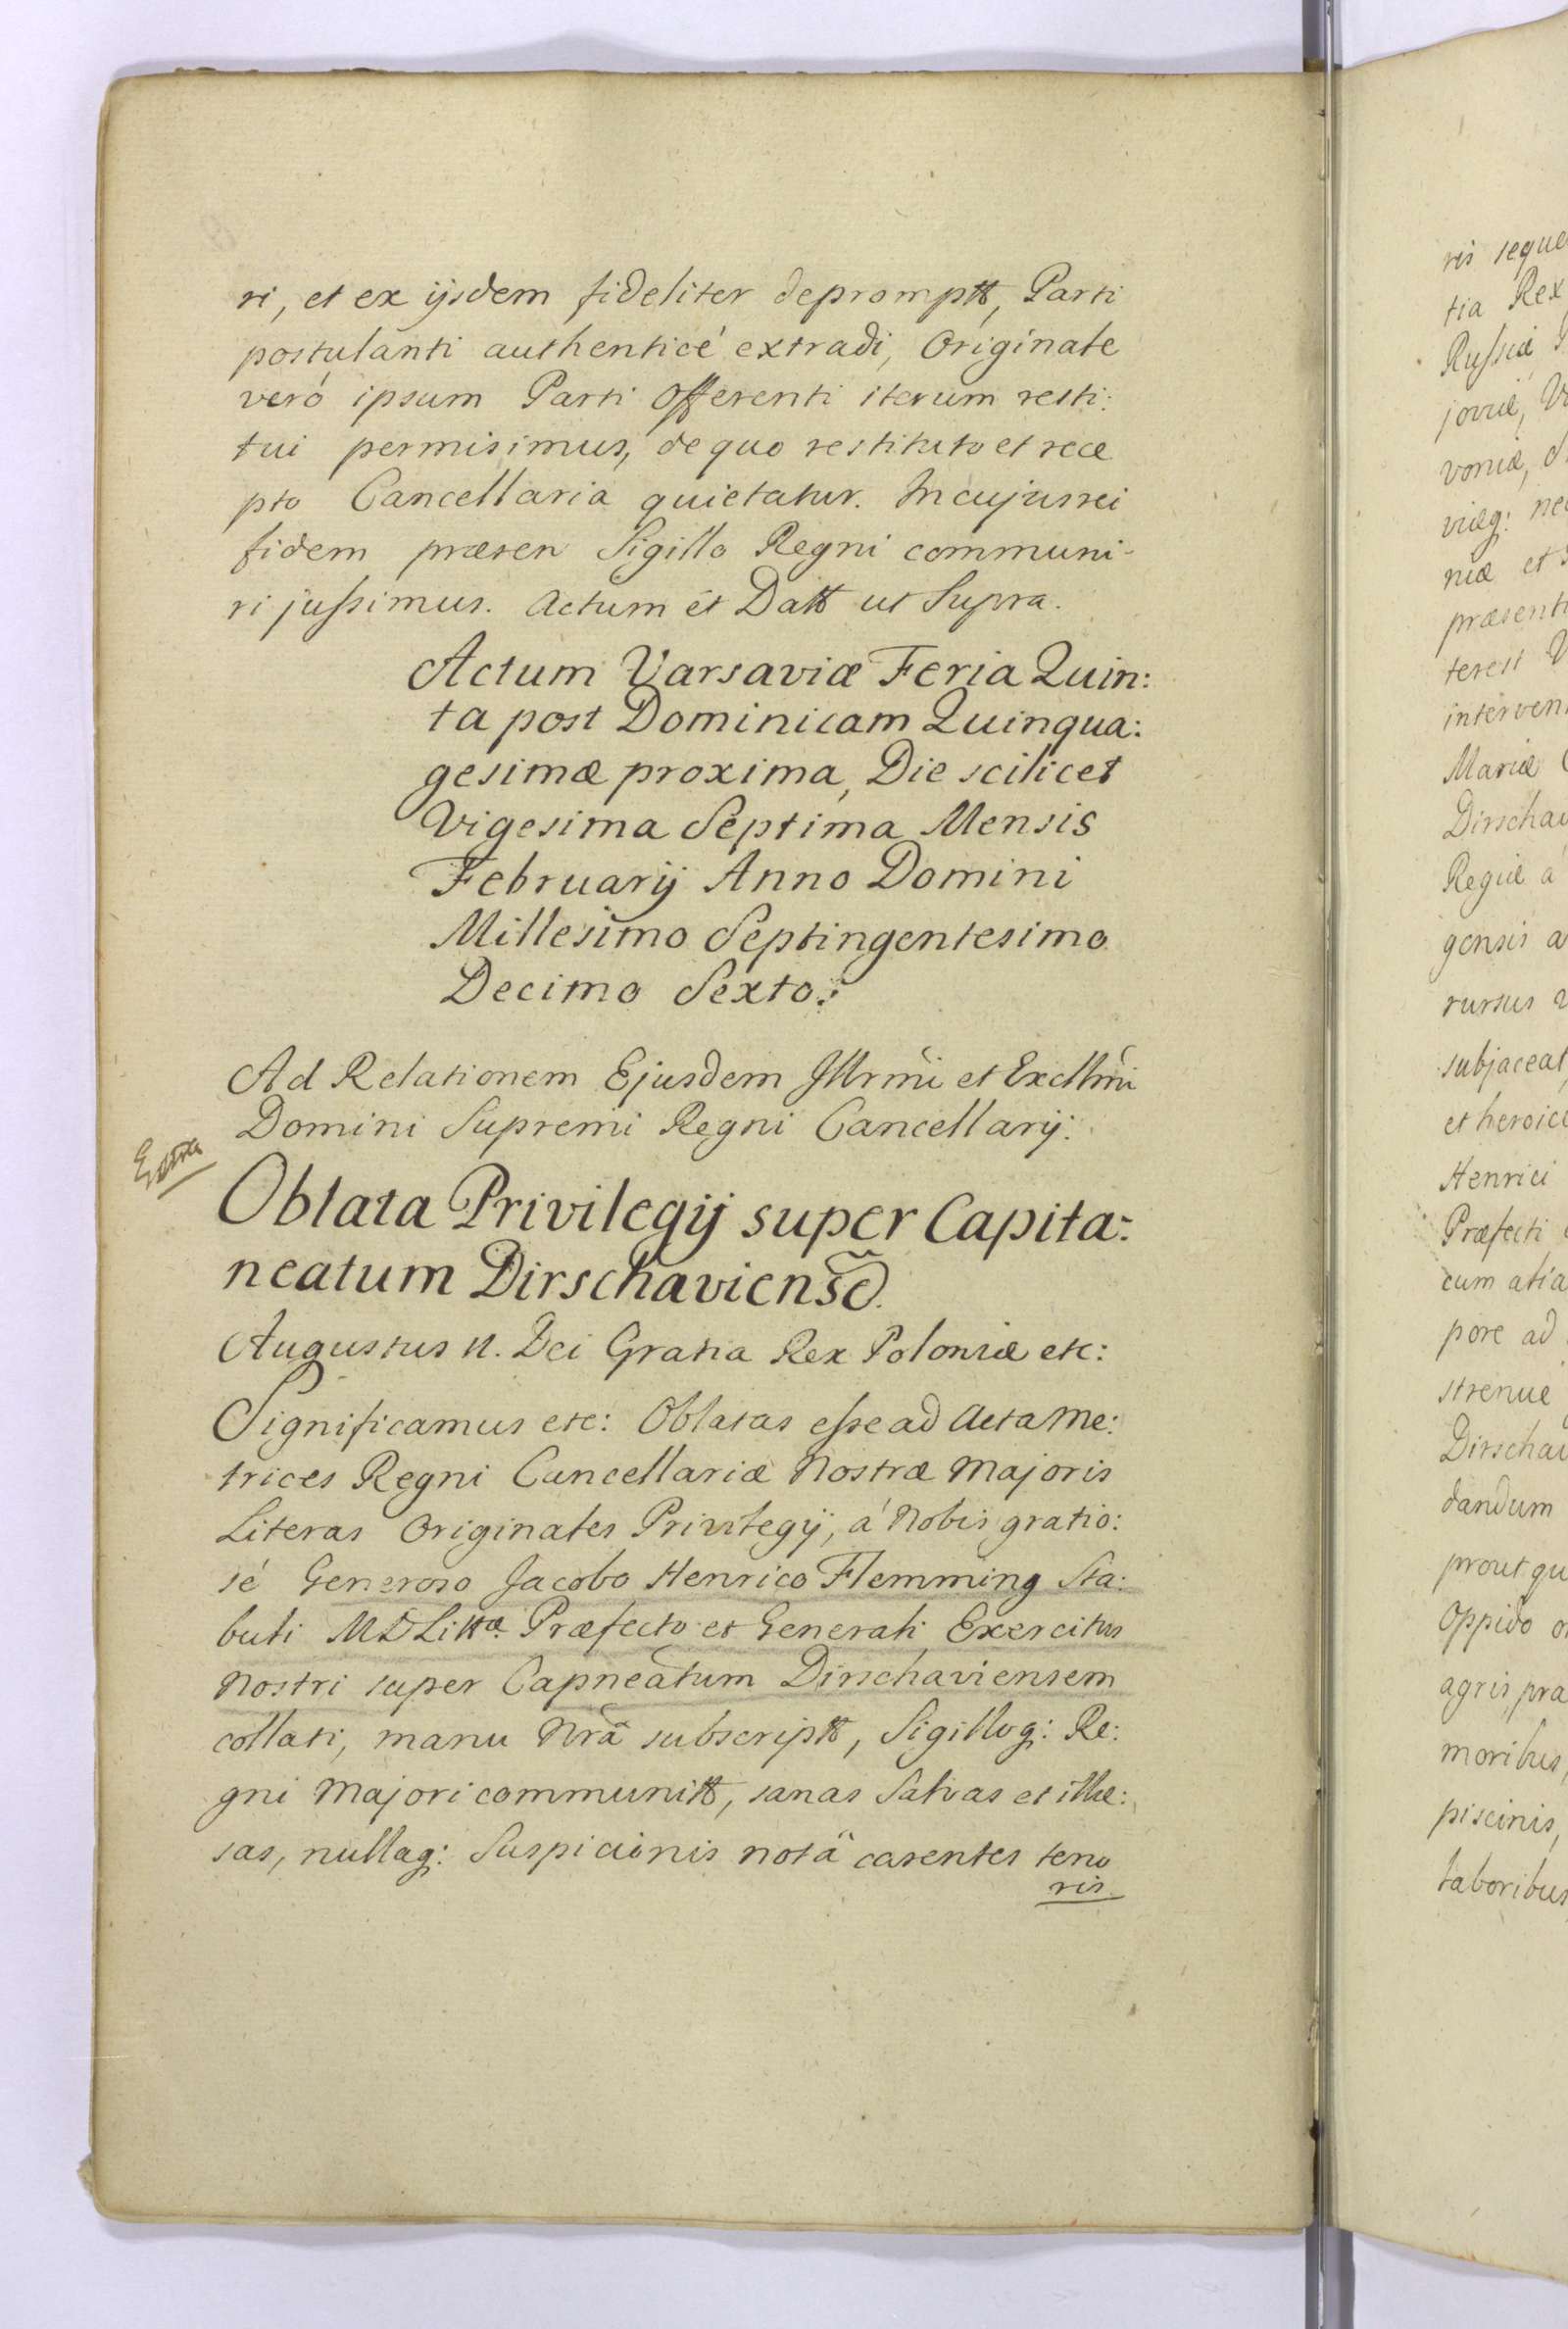 ri, et ex ijsdem fideliter depromptt, Parti
postulanti authenticé extradi, Originale
veró ipsum Parti Offerenti iterum resti:
tui permisimus, de quo restituto et rece
pto Cancellaria quietatur. In cujus rei
fidem præsen Sigillo Regni communi-
ri jussimus. Actum et Datt ut Supra.
Actum Varsaviæ Feria Quin:
ta post Dominicam Quinqua:
gesimæ proxima, Die scilicet
Vigesima Septima Mensis
Februarij Anno Domini
Millesimo Septingentesimo
Decimo Sexto:
Ad Relationem Ejusdem Illrmi et Excllmi
Domini Supremi Regni Cancellarij.
Oblata Privilegij super Capita:
neatum Dirschaviens̃
Augustus II. Dei Gratia Rex Poloniæ etc:
Significamus etc: Oblatas esse ad Acta Me:
trices Regni Cancellariæ Nostræ Majoris
Literas Originales Privilegij, á Nobis gratio:
sé Generoso Jacobo Henrico Flemming Sta:
buli MDLittæ Præfecto et Generali Exercitus
Nostri super Capneatum Dirschaviensem
collati, manu Nrâ subscriptt, Sigilloq: Re:
gni Majori communitt, sanas Salvas et illæ:
sas, nullaq: Suspicionis notâ carentes teno
ris.
ris seque
tia Rex
Russiæ
joviæ,
voniæ,
viæq:
niæ et
præsenti
terest
interveni
Mariæ
Dirschav
Regiæ á
gensis a
rursus
subjaceat
et heroice
Henrici
Præfecti
cum alia
pore ad
strenue
Dirschav
dandum
prout qu
Oppido
agris, pra
moribus,
piscinis,
laboribus